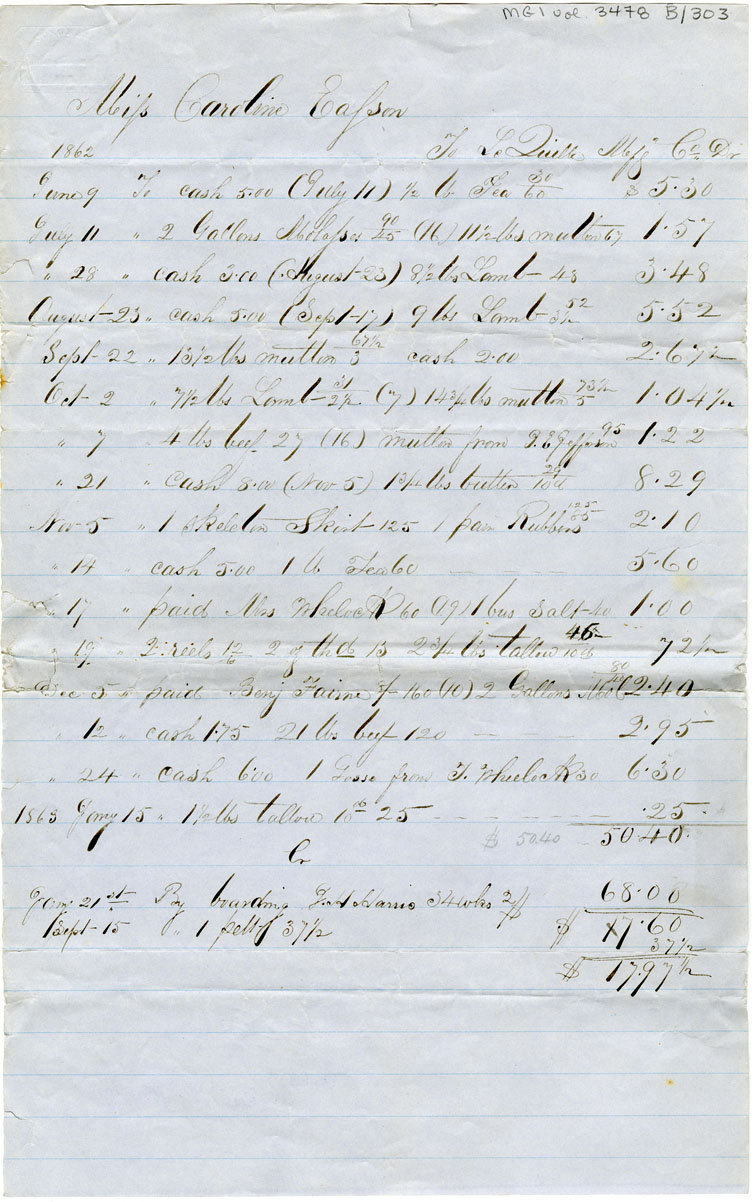 MG1 vol. 3478 B/303
Miss Caroline Easson
1862 To LeQuille Mfg Co Dr
June 9 To cash 5.00 (July 11) ½ lb Tea 30/60 $ 5.30
July 11 " 2 Gallons Molasses 90/45 (16) 11½ lbs mutton 67 1.57
" 28 " cash 3.00 (August 23) 8½ lbs Lamb 48 3.48
August 23 " cash 5.00 (Sept 17) 9 lbs Lamb 52 5.52
Sept 22 " 13½ lbs mutton 67½ cash 2.00 2.67½
Oct 2 " 7½ lbs Lamb 31 (7) 14¾ lbs mutton 73½/5 1.04½
" 7 " 4 lbs beef 27 (16) mutton from Jefferson 95 1.22
" 21 " cash 8.00 (Nov 5) 1¾ lbs butter 29 8.29
Nov 5 " 1 Skeleton Skirt 125 1 pair Rubbers 2.10
" 14 " cash 5.00 1 lb Tea 60 5.60
" 17 " paid Mrs Wheelock 60 (19) 1 bus Salt 40 1.00
" 19 " 2 reels 12/6 2 13 2¾ lbs tallow 72½
Dec 5 " paid Benj 160 (10) 2 Gallons Mol 80/40 2.40
" 12 " cash 1.75 21 lbs beef 120 2.95
" 24 " cash 6.00 1 Goose from T. Wheelock 30 6.30
1863 Jany 15 " 1½ lbs tallow 25 .25
$ 50.40 50.40
Cr
Jany 21st By boarding Harris 34 wks 2/$ 68.00
Sept 15 " 1 pelt 37½ $ 17.60
37½
$ 17.97½